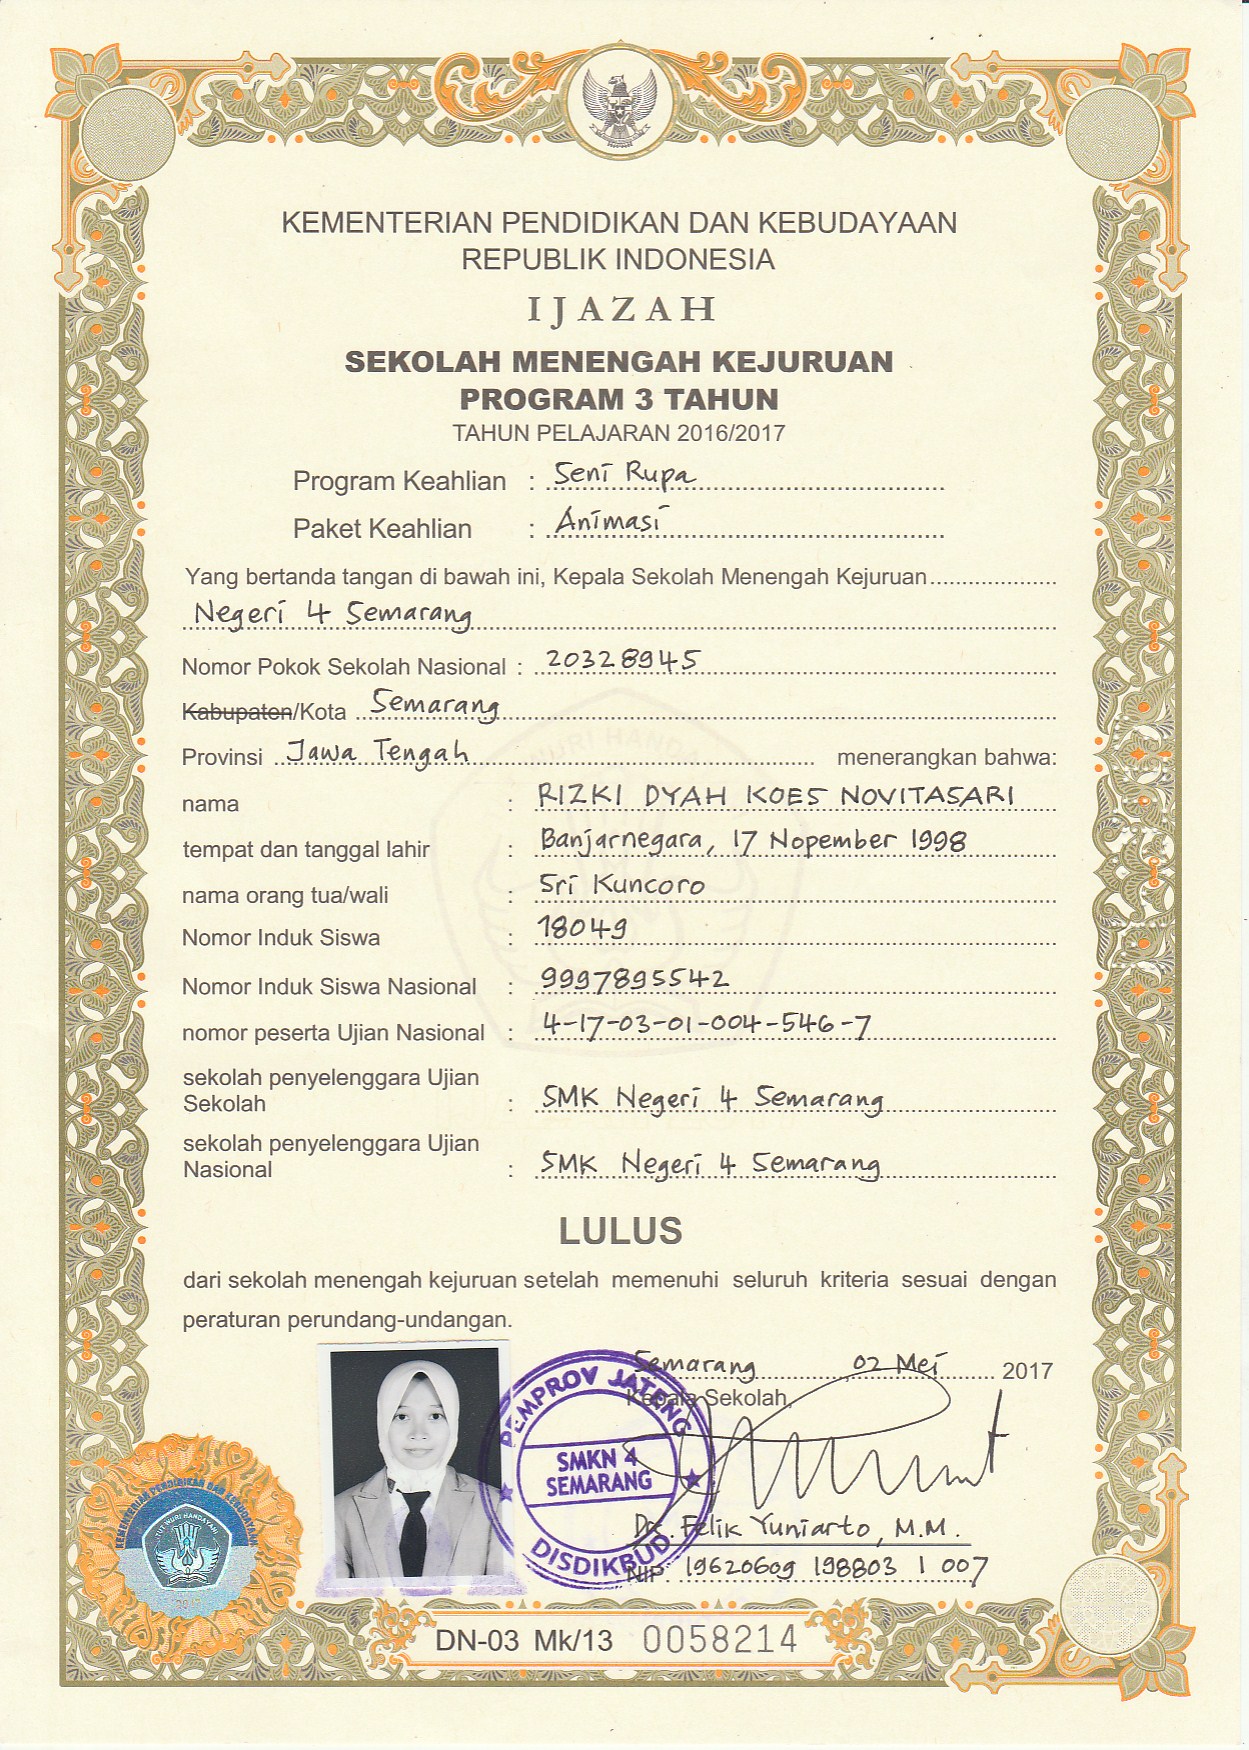 KEMENTERIAN PENDIDIKAN DAN KEBUDAYAAN
REPUBLIK INDONESIA
IJAZAH
SEKOLAH MENENGAH KEJURUAN
PROGRAM 3 TAHUN
TAHUN PELAJARAN 2016/2017
Program Keahlian : Seni Rupa
Paket Keahlian : Animasi
Yang bertanda tangan di bawah ini, Kepala Sekolah Menengah Kejuruan
Negeri 4 Semarang
Nomor Pokok Sekolah Nasional : 20328945
Kabupaten/Kota Semarang
Provinsi Jawa Tengah menerangkan bahwa:
nama : RIZKI DYAH KOES NOVITASARI
tempat dan tanggal lahir : Banjarnegara, 17 Nopember 1998
nama orang tua/wali : Sri Kuncoro
Nomor Induk Siswa : 18049
Nomor Induk Siswa Nasional : 9997895542
nomor peserta Ujian Nasional : 4-17-03-01-004-546-7
sekolah penyelenggara Ujian
Sekolah : SMK Negeri 4 Semarang
sekolah penyelenggara Ujian
Nasional : SMK Negeri 4 Semarang
LULUS
dari sekolah menengah kejuruan setelah memenuhi seluruh kriteria sesuai dengan
peraturan perundang-undangan.
Semarang, 02 Mei 2017
Kepala Sekolah,
PEMPROV JATENG
SMKN 4
SEMARANG
DISDIKBUD
Drs. Felik Yuniarto, M.M.
NIP. 19620609 198803 1 007
KEMENTERIAN PENDIDIKAN DAN KEBUDAYAAN
TUT WURI HANDAYANI
DN-03 Mk/13 0058214